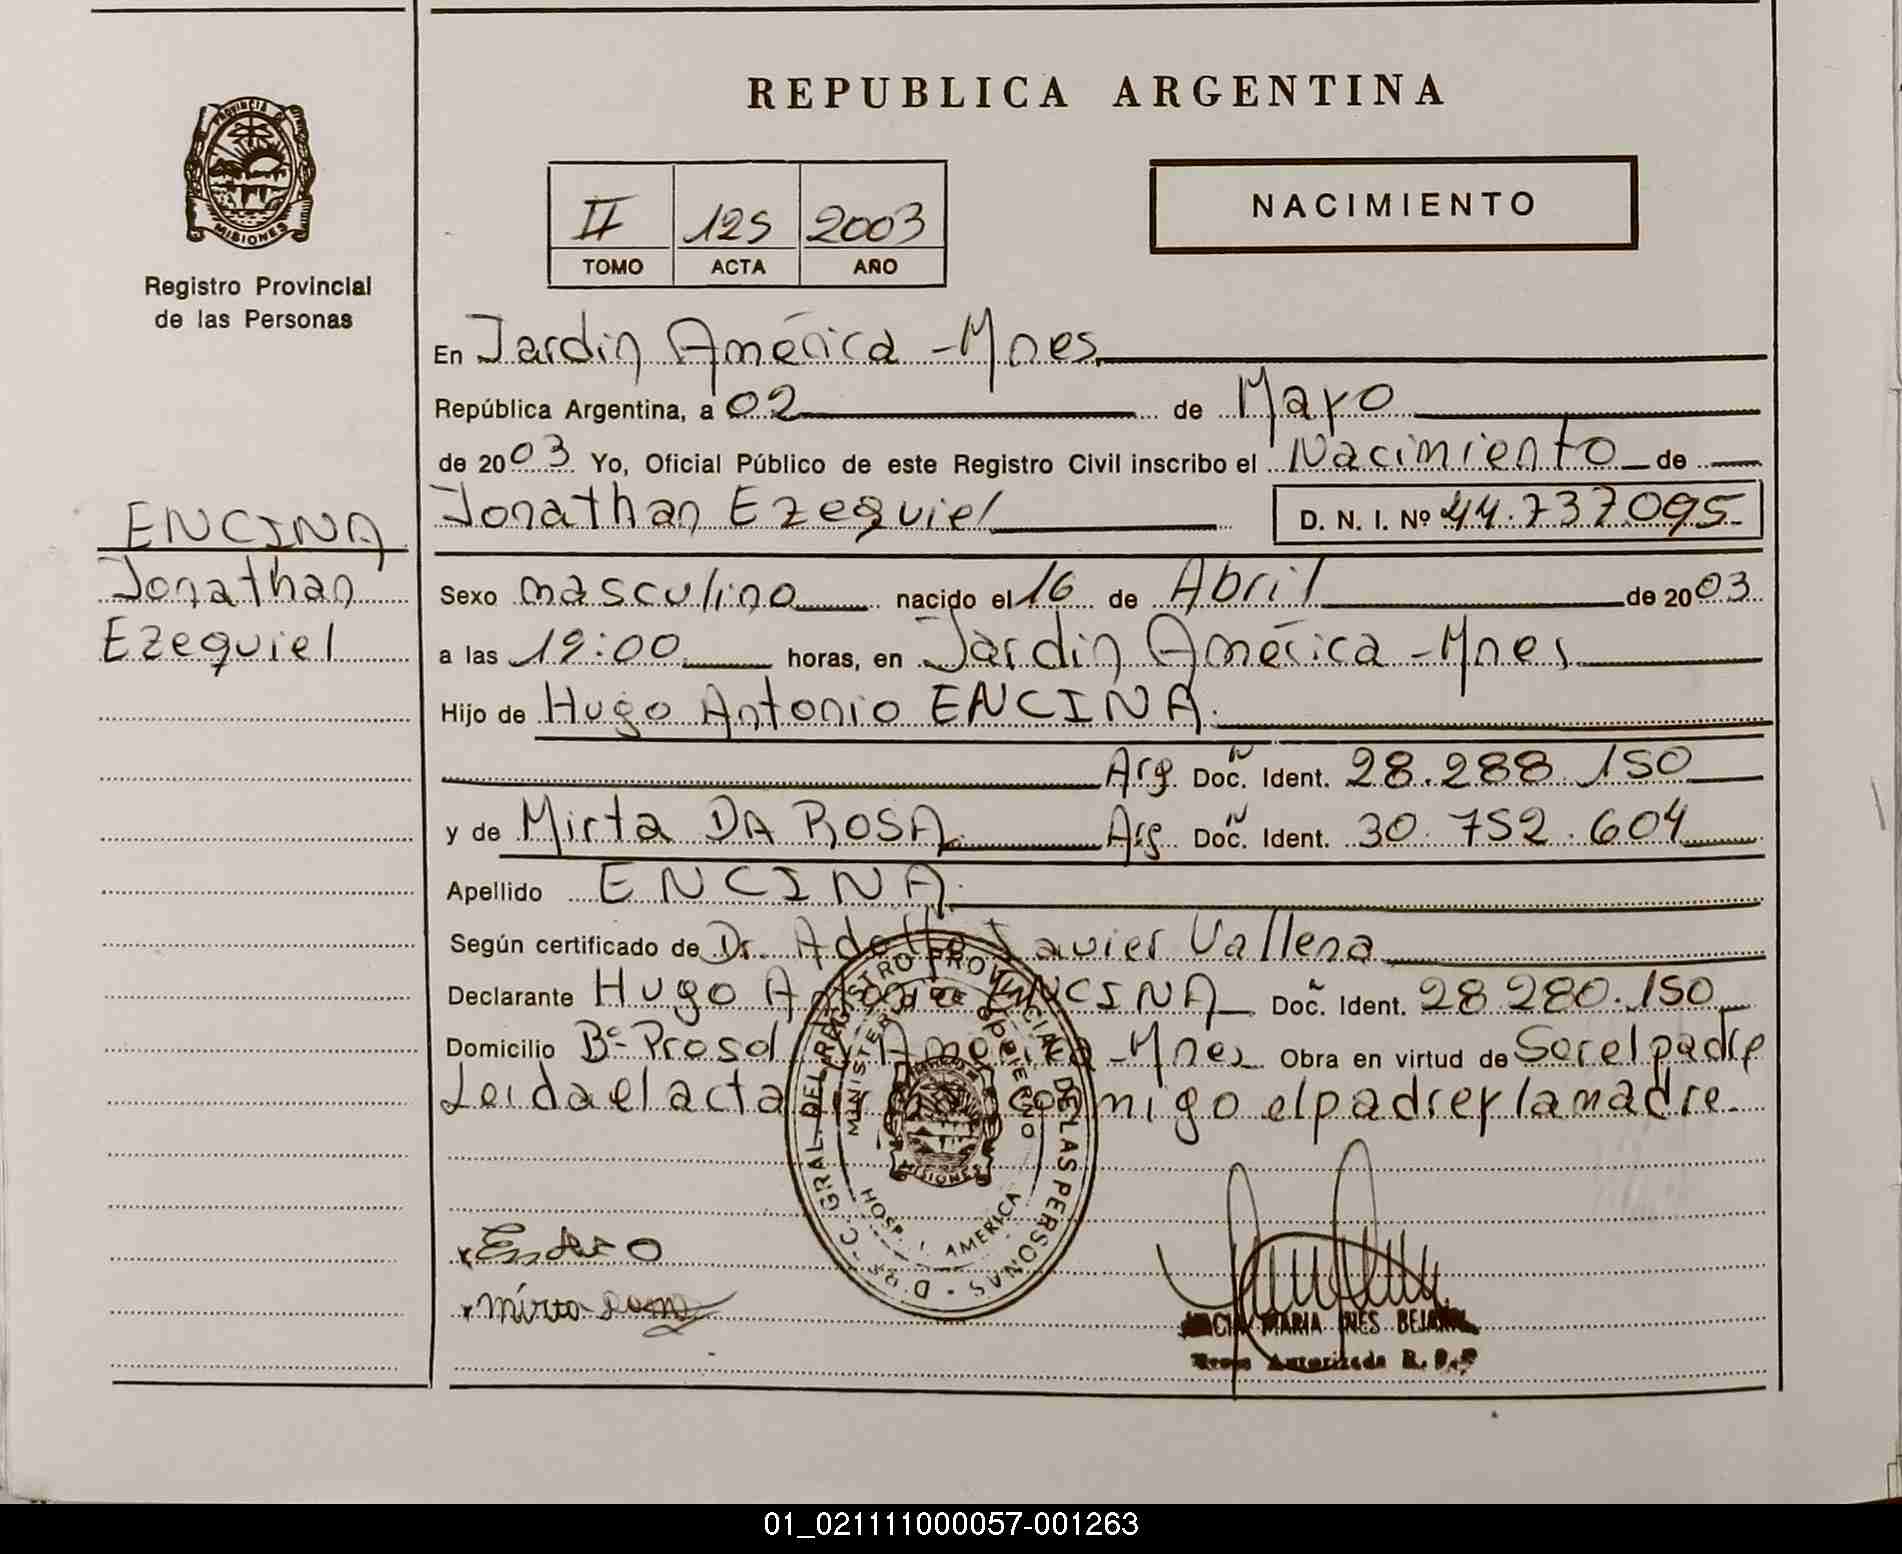 REPUBLICA ARGENTINA
PROVINCIA DE
MISIONES
Registro Provincial
de las Personas
II 125 2003
TOMO ACTA AÑO
NACIMIENTO
En Jardin América - Mnes.
República Argentina, a 02 de Mayo
de 2003 Yo, Oficial Público de este Registro Civil inscribo el Nacimiento de
Jonathan Ezequiel D. N. I. Nº 44.737.095
ENCINA
Jonathan
Ezequiel
Sexo masculino nacido el 16 de Abril de 2003
a las 19:00 horas, en Jardin América - Mnes
Hijo de Hugo Antonio ENCINA.
Arg. Doc. Ident. 28.288.150
y de Mirta DA ROSA. Arg. Doc. Ident. 30.752.604
Apellido ENCINA.
Según certificado de Dr. Adolfo Javier Vallena
Declarante Hugo Antonio ENCINA Doc. Ident. 28.280.150
Domicilio Bº Prosol América - Mnes Obra en virtud de Ser el padre
Leida el acta conmigo el padre y la madre.
D Q S - C. GRAL. DEL REGISTRO PROVINCIAL DE LAS PERSONAS
MINISTERIO DE GOBIERNO
MISIONES
HOSP. J. AMERICA
x
x mirta
MARIA INES
Autorizada R. P. P
01_021111000057-001263